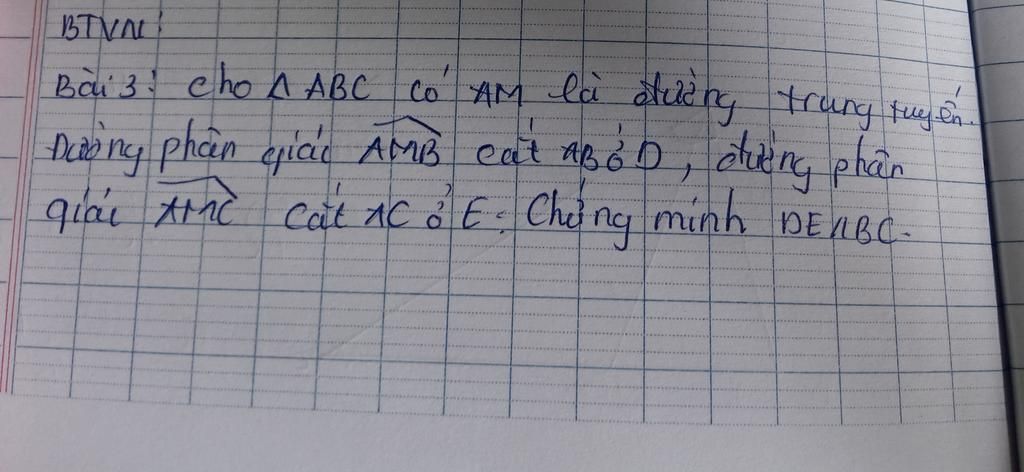 BTVN:
Bài 3: Cho Δ ABC có AM là đường trung tuyến.
Đường phân giác AMB cắt AB ở D, đường phân
giác AMC cắt AC ở E. Chứng minh DE//BC.